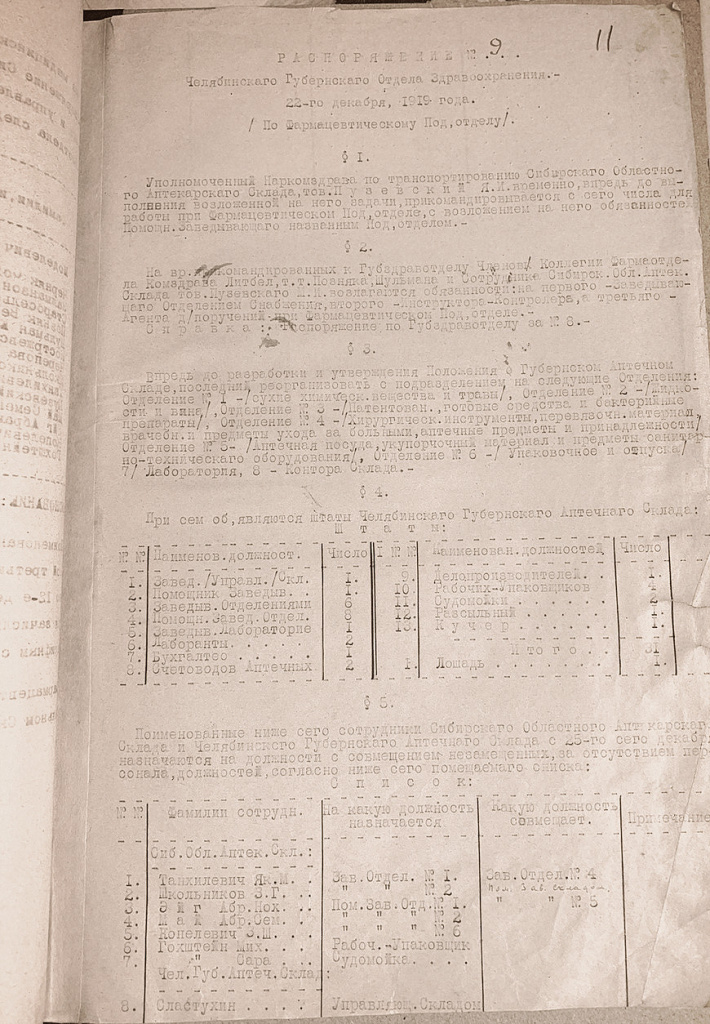 11
РАСПОРЯЖЕНИЕ № 9.
Челябинскаго Губернскаго Отдела Здравоохранения.-
22-го декабря, 1919 года.
/ По Фармацевтическому Под,отделу/.
§ 1.
Уполномоченный Наркомздрава по транспортированию Сибирскаго Областно-
го Аптекарскаго Склада,тов.Пузевский Я.И.временно,впредь до вы-
полнения возложенной на него задачи,прикомандировывается с сего числа для
работы при Фармацевтическом Под,отделе,с возложением на него обязанностей
Помощн.Заведывающего названным Под,отделом.-
§ 2.
На вр. командированных к Губздравотделу Членов Коллегии Фармаотде-
ла Комздрава Литбел,т.т.Позняка,Шульмана и Сотрудника Сибирск.Обл.Аптек.
Склада тов.Пузевскаго возлагаются обязанности:на первого -Заведываю-
щаго Отделением Снабжения,второго -Инструктора-Контролера,а третьяго -
Агента д/поручений при Фармацевтическом Под,отделе.-
Справка: Распоряжение по Губздравотделу за № 8.-
§ 3.
Впредь до разработки и утверждения Положения о Губернском Аптечном
Складе,последний реорганизовать с подразделением на следующие Отделения:
Отделение № 1 -/сухие химическ.вещества и травы/, Отделение № 2 -/жидко-
сти и вина/,Отделение № 3 -/патентован.,готовые средства и бактерийные
препараты/, Отделение № 4 -/Хирургическ.инструменты,перевязочн.материал,
врачебн.и предметы ухода за больными,аптечные предметы и принадлежности/
Отделение № 5- /Аптечная посуда,укупорочный материал и предметы санитар-
но-техническаго оборудования/, Отделение № 6 -/ Упаковочное и отпуска/
7/ Лаборатория, 8 - Контора Склада.-
§ 4.
При сем об,являются штаты Челябинскаго Губернскаго Аптечнаго Склада:
Штаты:
№ № Наименов.должност. Число № № Наименован.должностей Число
1. Завед./Управл./Скл. 1. 9. Делопроизводителей. . 1.
2. Помощник Заведыв. 1. 10. Рабочих-упаковщиков 4
3. Заведыв.Отделениями 6 11. Судомойки . . . . . 2
4. Помощн.Завед.Отдел. 6 12. Рассыльный . . . . . 1.
5. Заведыв.Лабораторие 1 13. Кучер . . . . . 1.
6. Лаборанты. . . . . 2 Итого . . . 31
7. Бухгалтер . . . . . 1
8. Счетоводов Аптечных 2 1. Лошадь . . . . . 1.
§ 5.
Поименованные ниже сего сотрудники Сибирскаго Областного Аптекарскаг
Склада и Челябинскго Губернскаго Аптечнаго Склада с 25-го сего декабр
назначаются на должности с совмещением незамещенных,за отсутствием пер
сонала,должностей,согласно ниже сего помещаемаго списка:
Список:
№ № Фамилии сотрудн. На какую должность назначается. Какую должность совмещает. Примечание
Сиб.Обл.Аптек.Скл.:
1. Танхилевич Як.М. . Зав.Отдел. № 1. Зав.Отдел.№ 4
2. Школьников З.Г. . . " " № 2 пом. Зав. складом,
3. Эйг Абр.Нох. . . Пом.Зав.Отд.№ 1. " " № 5
4. Май Абр.Сем. . . " " " № 2
5. Копелевич З.Ш. . . " " " № 6
6. Рохштейн Мих. . . . Рабоч.-Упаковщик
7. " Сара . . . Судомойка. . . .
Чел.Губ.Аптеч.Склад:
8. Сластухин . . . . Управляющ.Складом